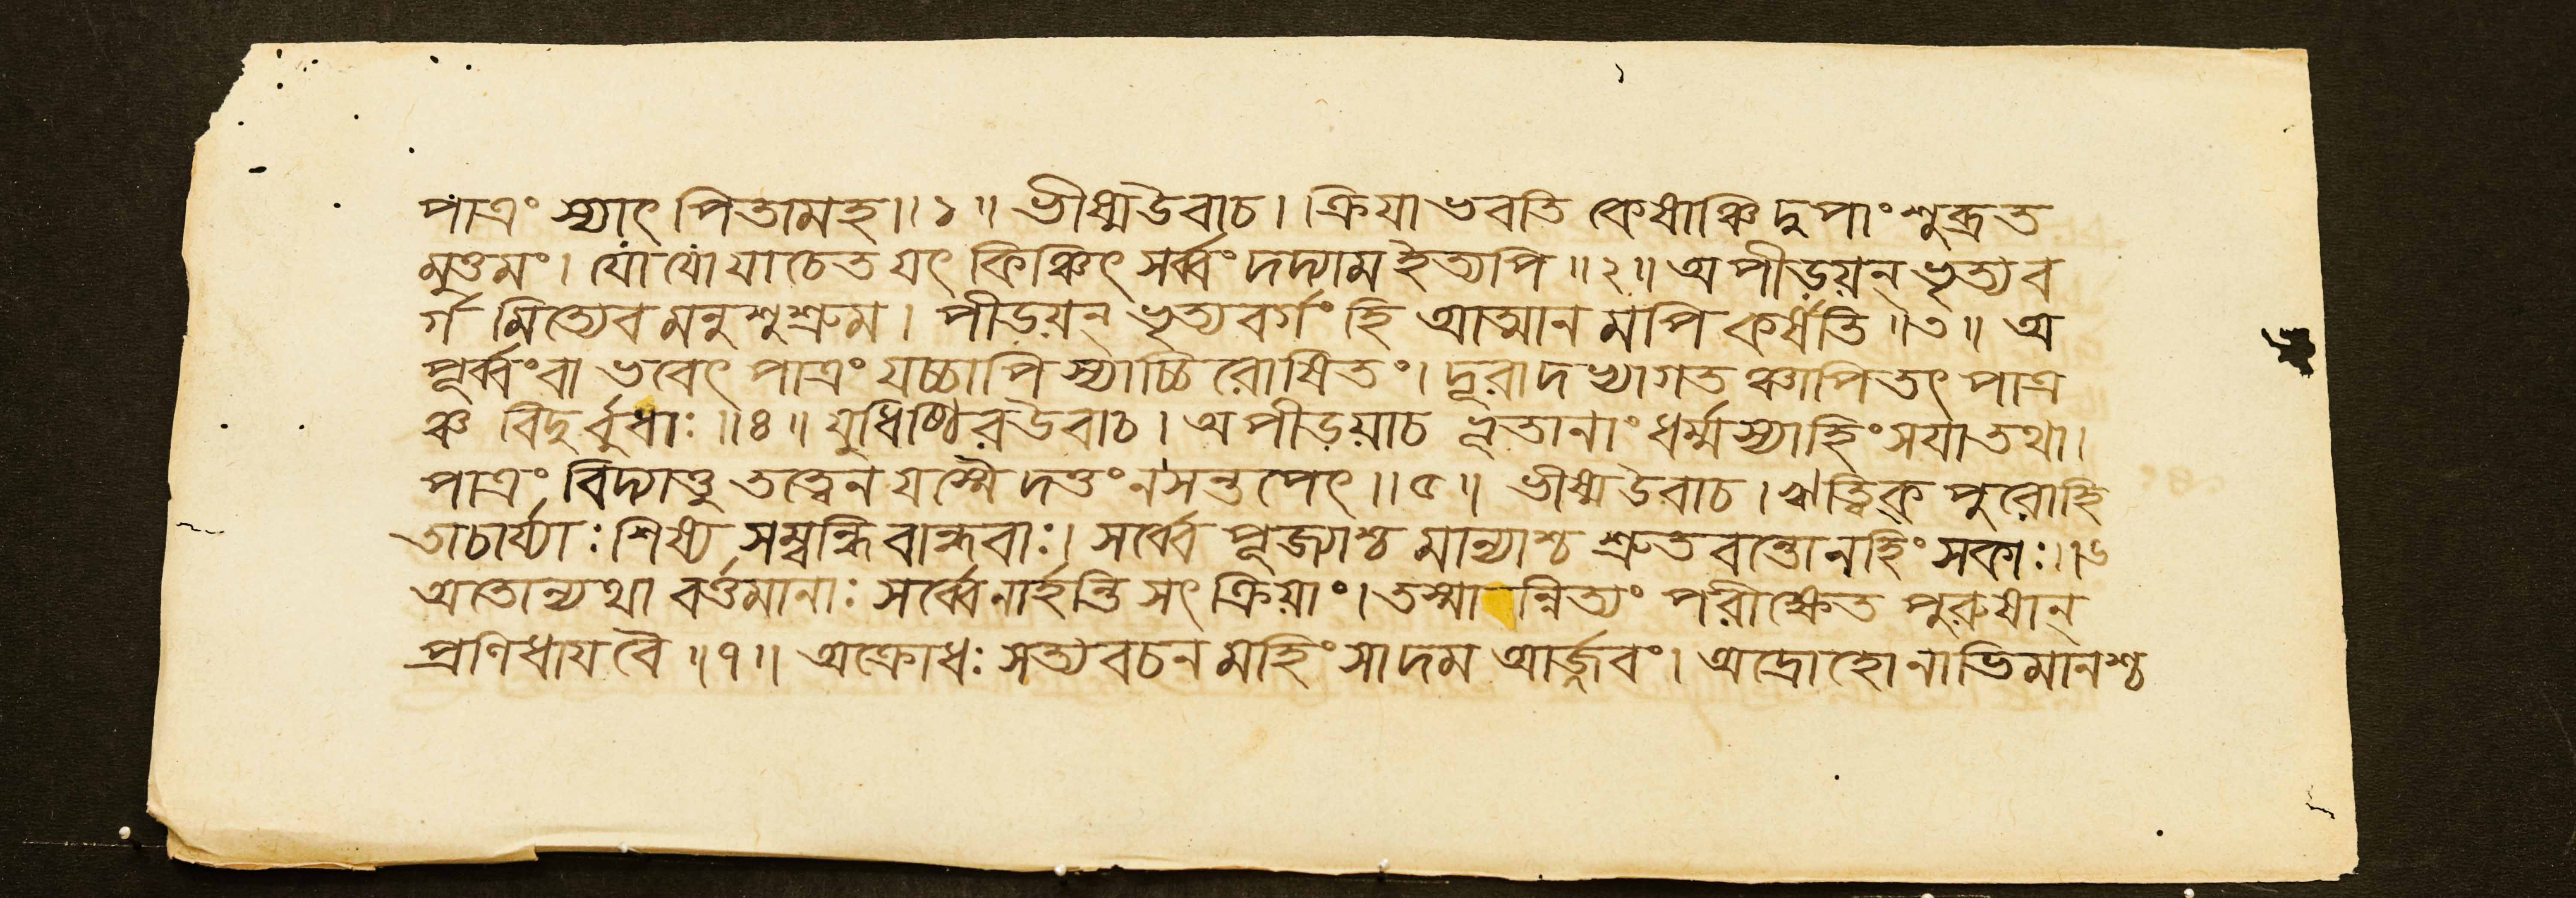 পাত্রং স্যাৎ পিতামহ॥১॥ ভীষ্মউবাচ। ক্রিয়া ভবতি কেষাঞ্চি দুপাংশুব্রত
মুত্তমং। যোযোযাচেত যৎ কিঞ্চিৎ সর্ব্বং দদ্যামইত্যপি॥২॥ অপীড়য়ন্ ভৃত্যব
র্গ মিত্যেব মনুশুশ্রুম। পীড়য়ন্ ভৃত্যবর্গং হি আত্মান মপি কর্ষতি॥৩॥ অ
পূর্ব্বংবা ভবেৎ পাত্রং যচ্চাপি স্যাচ্চিরোষিতং। দূরাদভ্যাগত ঞ্চাপিতৎ পাত্র
ঞ্চ বিদুর্বুধাঃ॥৪॥ যুধিষ্ঠিরউবাচ। অপীড়য়াচ ভূতানাং ধর্ম্মস্যাহিংসযাতথা।
পাত্রং বিদ্যাত্তু তত্ত্বেন যস্মৈদত্তং নসন্তপেৎ॥৫॥ ভীষ্মউবাচ। ঋত্বিক্ পুরোহি
তাচার্য্যাঃ শিষ্য সম্বন্ধিবান্ধবাঃ। সর্ব্বে পূজ্যাশ্চ মান্যাশ্চ শ্রুতবন্তোনহিংসকাঃ॥৬
অতোন্যথা বর্ত্তমানাঃ সর্ব্বেনার্হন্তি সৎক্রিয়াং। তস্মা ন্নিত্যং পরীক্ষেত পুরুষান্
প্রণিধাযবৈ॥৭॥ অক্রোধঃ সত্যবচন মহিংসাদম আর্জ্জবং। অদ্রোহোনাভিমানশ্চ